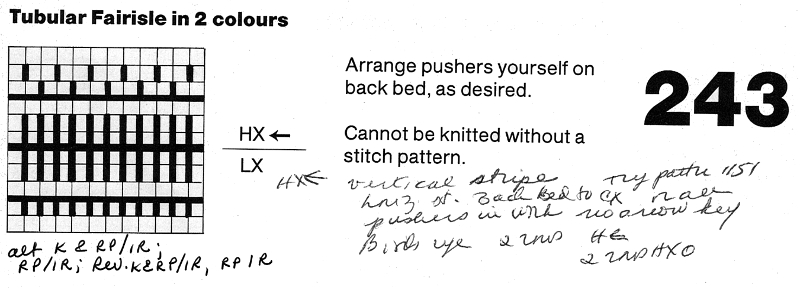 Tubular Fairisle in 2 colours
Arrange pushers yourself on
back bed, as desired.
243
HX ←
LX
Cannot be knitted without a
stitch pattern.
HX ←
vertical stripe
Try pattn 1151
horiz st. Back Bed to CX
pushers in with no arrow key
Birds eye 2 rnds
2 rnds HXO
alt K & RP/1R;
RP/1R; Rev. K&RP/1R, RP 1R